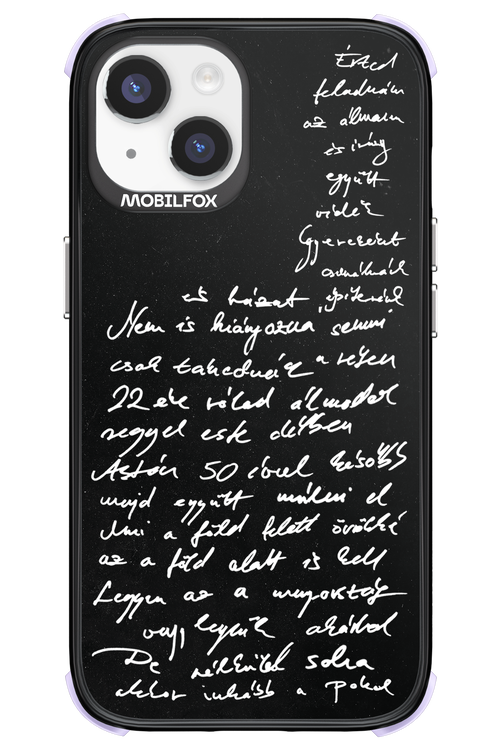 MOBILFOX
Érted
feladnám
az álmaim
és így
együtt
vidék
Gyereket
csinálnánk
és házat építenénk
Nem is hiányozna semmi
csak
22 éve rólad álmodok
reggel este délben
Aztán 50 évvel később
majd együtt múlni el
Ami a föld felett örökké
az a föld alatt is kell
Legyen az a menyország
vagy legyünk akárhol
De nélküled soha
akkor inkább a Pokol